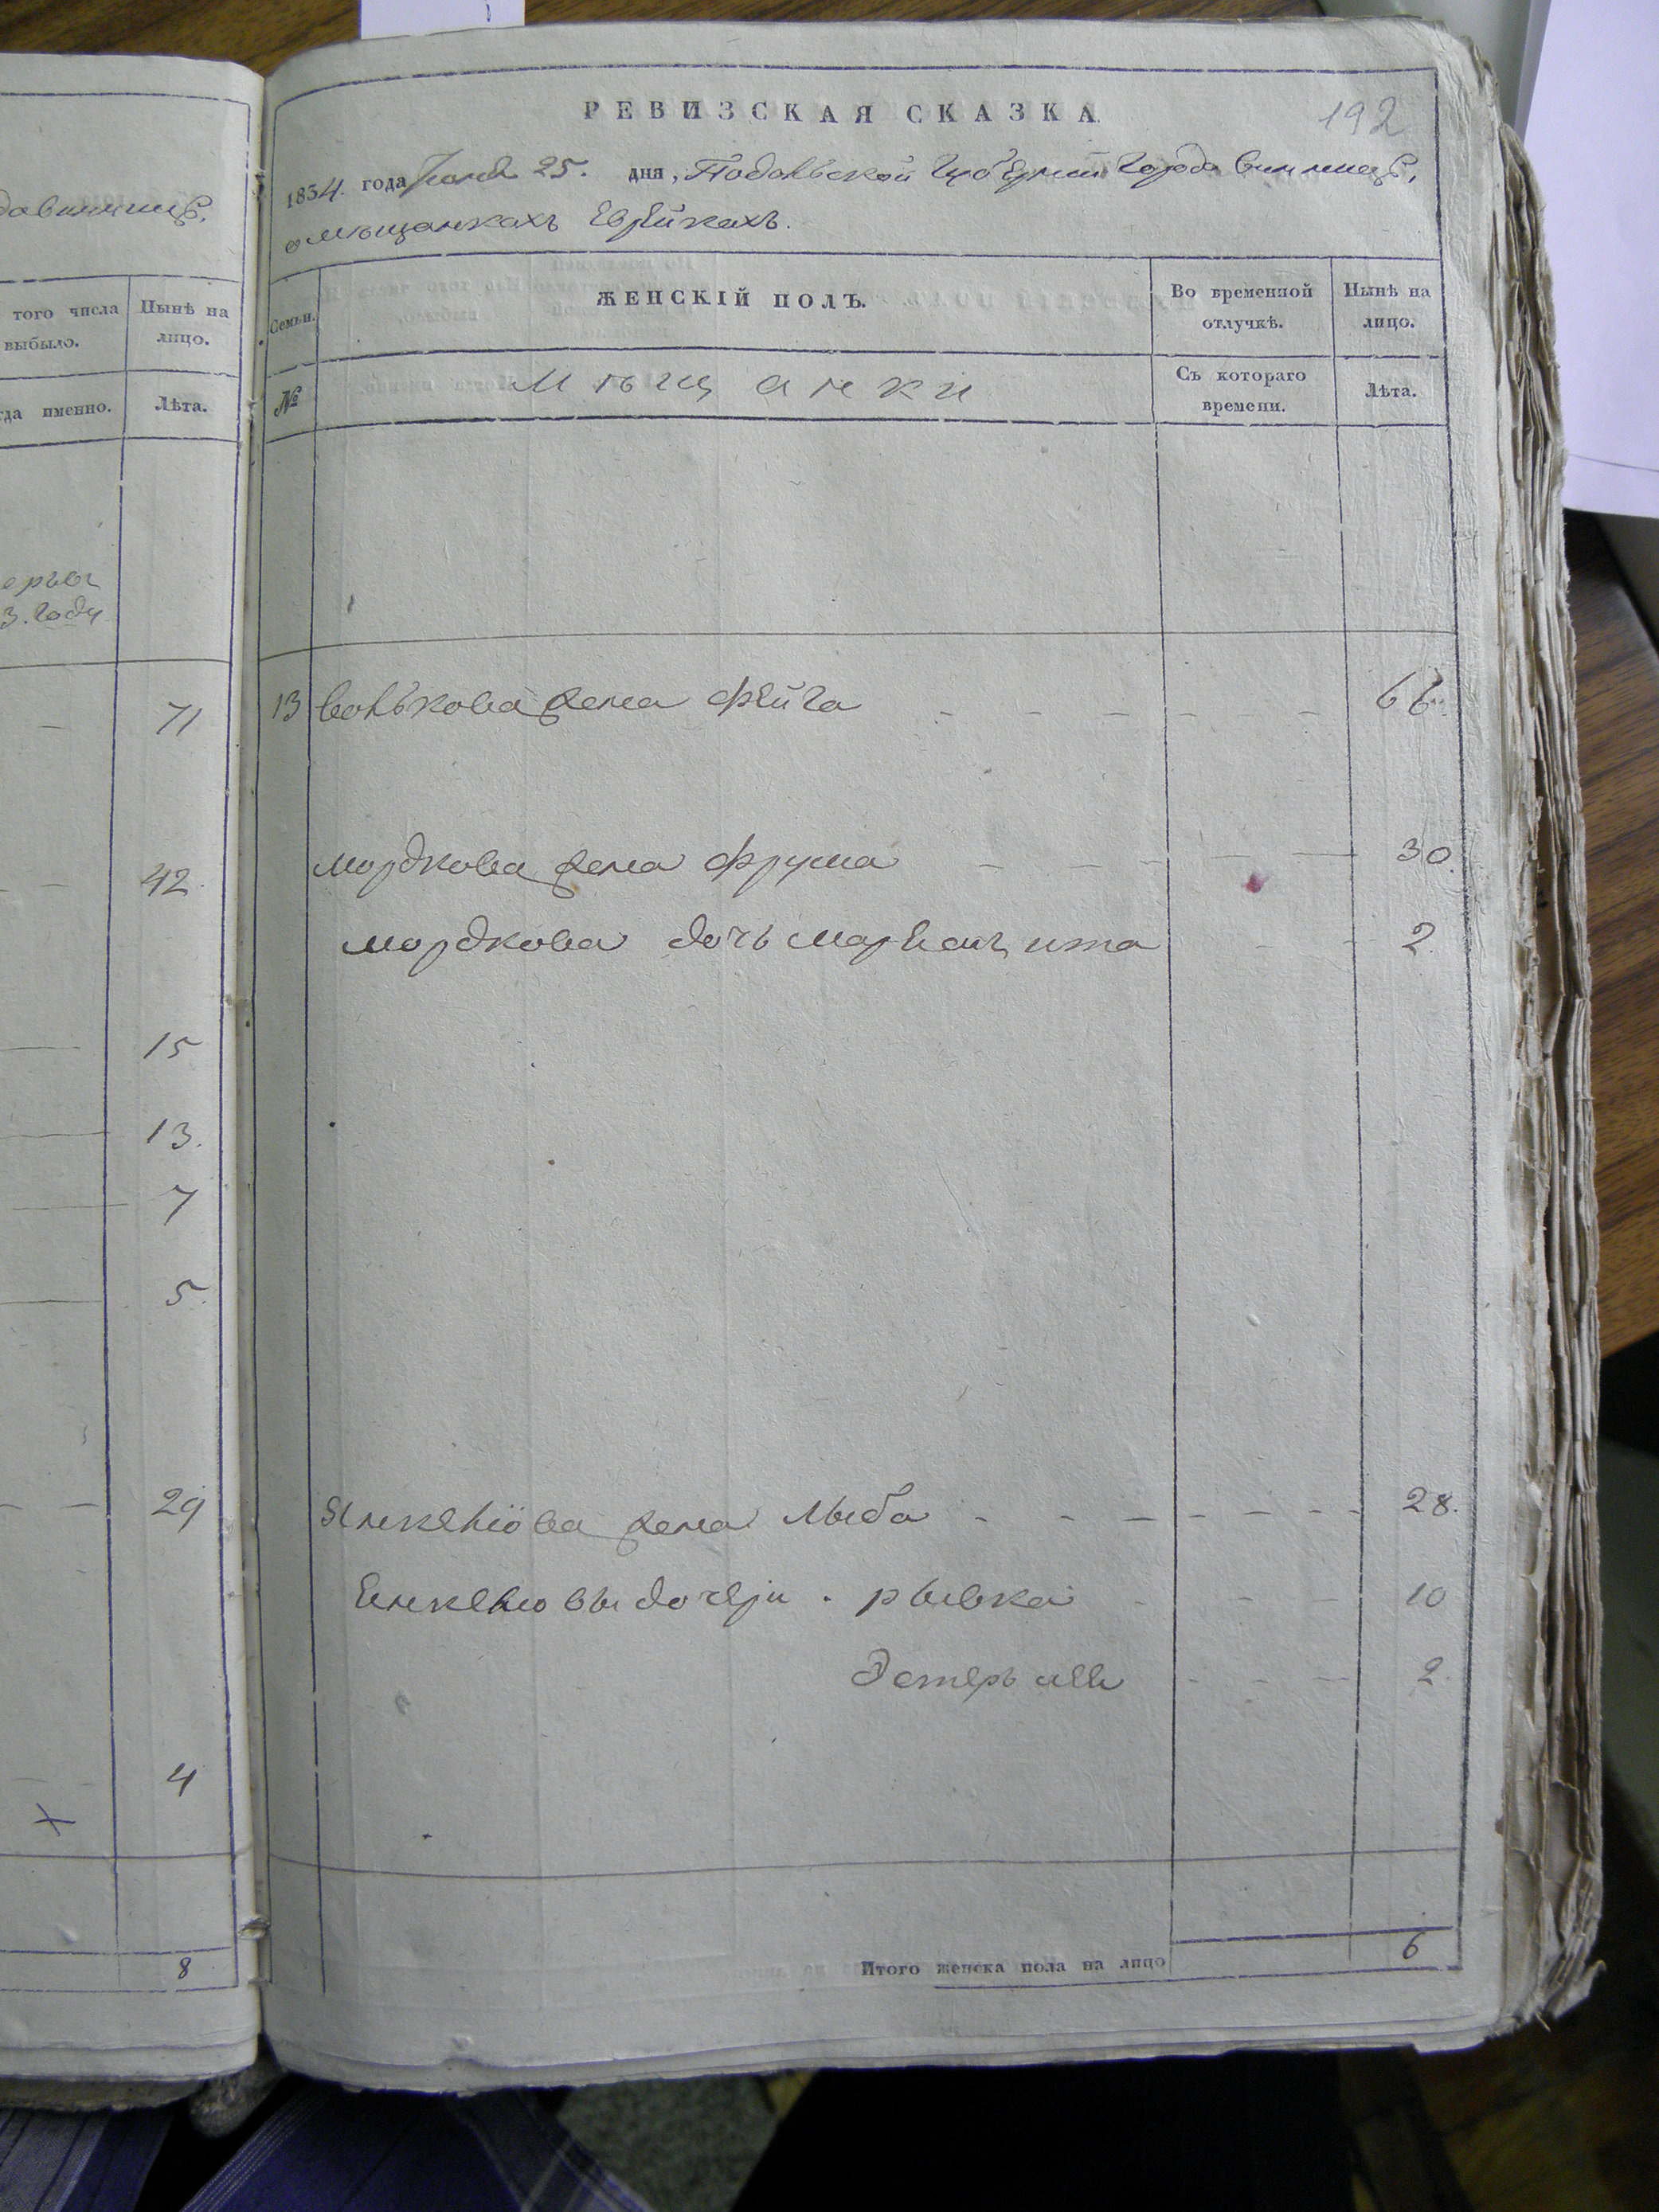 РЕВИЗСКАЯ СКАЗКА
192
1834. года Июня 25. дня, Подольской Губернии Города Винницѣ,
о мѣщанкахъ Еврейкахъ.
Семьи.
ЖЕНСКІЙ ПОЛЪ.
Во временной отлучкѣ.
Нынѣ на лицо.
№
Мѣщанки
Съ котораго времени.
Лѣта.
13 Волькова жена Фейга 66.
Мордкова жена Фрума 30.
Мордкова дочь Марьям ита 2.
Янкелiова жена Лыба 28.
Енкелювы дочери. рывка 10
Эстерь 2.
Итого женска пола на лицо 6
того числа выбыло.
Нынѣ на лицо.
гда именно.
Лѣта.
3. Году
71
42.
15
13.
7
5.
29
4
8